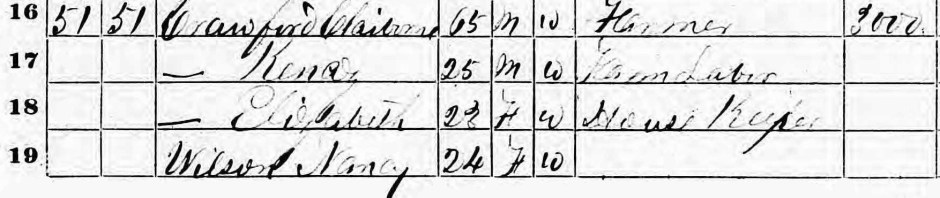 16 51 51 Crawford Claiborne 65 M W Farmer 3000
17 — 25 M W Farm Labor
18 — Elizabeth 23 F W House Keeper
19 Wilson Nancy 24 F W